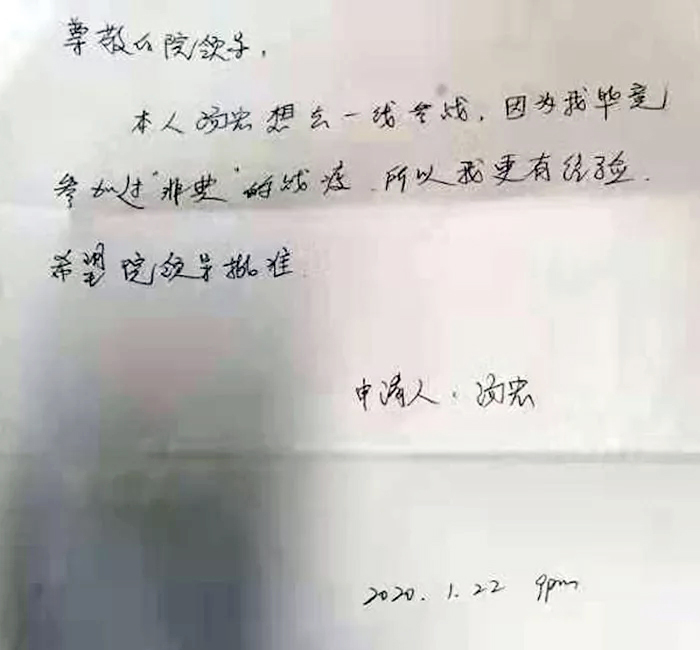 尊敬的院领导,
本人汤宏想去一线参战,因为我毕竟
参加过"非典"的战疫.所以我更有经验.
希望院领导批准.
申请人:汤宏
2020.1.22 9pm